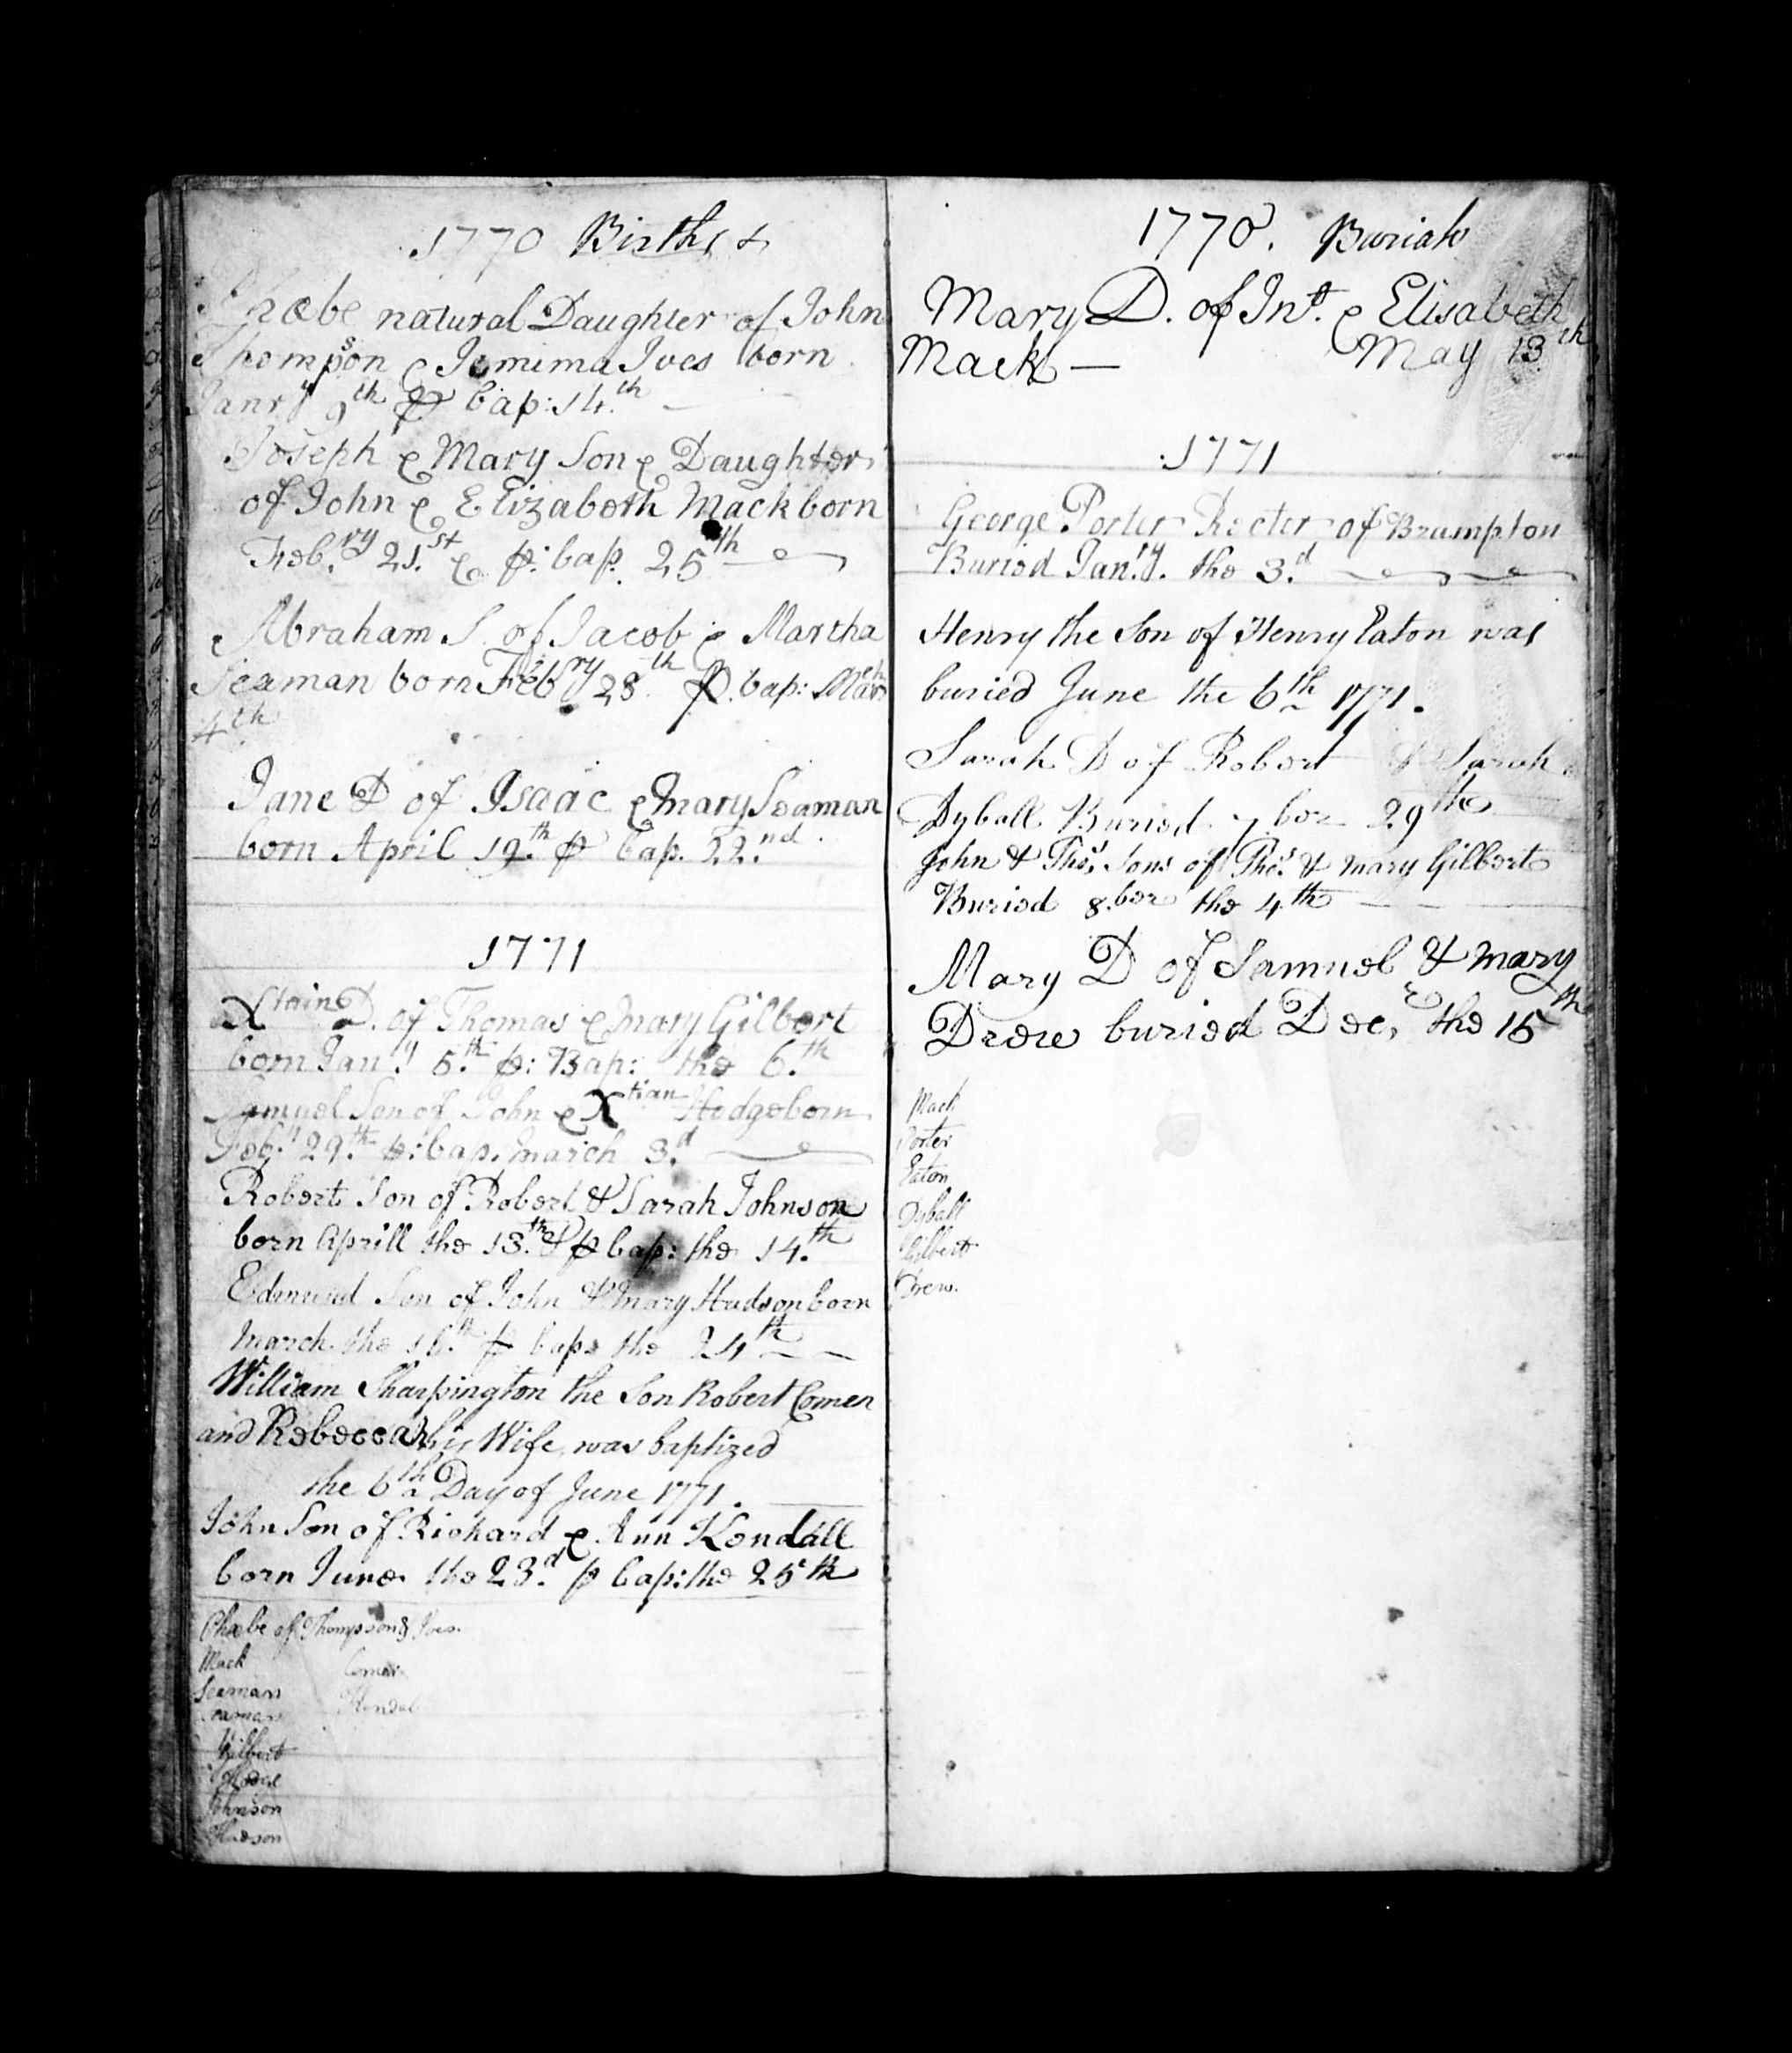 1770 Births &
Phœbe natural Daughter of John
Thompson & Jemima Ives born
Janry 9th & bap: 14th
Joseph & Mary Son & Daughter
of John & Elizabeth Mack born
Feb.ry 21.st & p: bap. 25th
Abraham S. of Jacob & Martha
Seaman born Febry 28th p. bap: March
4th
Jane D of Isaac & Mary Seaman
born April 19.th p bap. 22.nd
1771
Xtain D. of Thomas & Mary Gilbert
born Jan.y 5.th p: Bap: the 6.th
Samuel Son of John & Xtian Hodge born
Feb.y 29.th p: bap. march 3.d
Robert Son of Robert & Sarah Johnson
born Aprill the 13.th & p bap: the 14.th
Edmund Son of John & Mary Hudson born
March the 16.th p bap. the 24th
William Sharpington the Son Robert Comer
and Rebeccah his Wife was baptized
the 6th Day of June 1771.
John Son of Richard & Ann Kendall
born June the 23.d p bap: the 25th
Phœbe of Thompson & Ives
Mack Comer
Seaman Kendal
Seaman
Gilbert
Johnson
Hudson
1770. Burials
Mary D. of Jnº. & Elisabeth
Mack — May 13th
1771
George Porter Rector of Brumpton
Buried Jan.ry. the 3.d
Henry the Son of Henry Eaton was
buried June the 6th 1771.
Sarah D of Robert & Sarah
Dyball Buried 7 ber 29th
John & Thos. Sons of Thos. & Mary Gilbert
Buried 8.ber the 4th
Mary D of Samuel & Mary
Drew buried Decr, the 15th
Mack
Porter
Eaton
Dyball
Gilbert
Drew.